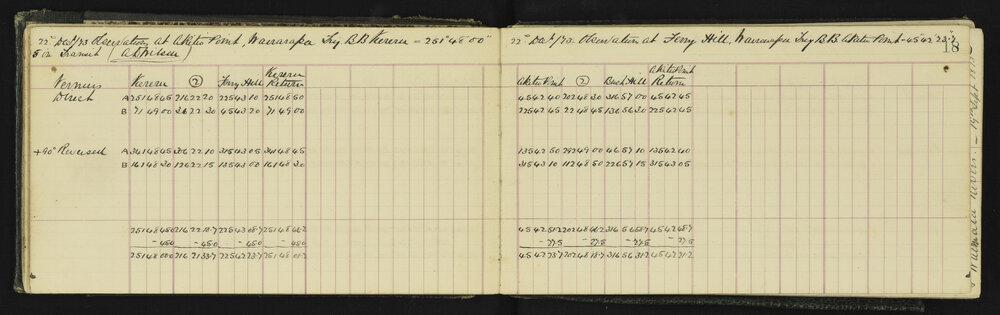 22" Dec/73 Observations at Akitio Point, Wairarapa Trig B.B. Kereru = 251° 48' 00"
5 in Transit (A.D. Wilson)
Verniers Kereru (2) Ferry Hill Kereru Return
Direct A 251 48 45 216 22 20 225 43 10 251 48 50
B 71 49 00 36 22 30 45 43 20 71 49 00
+90° Reversed A 341 48 45 306 22 10 315 43 05 341 48 45
B 161 48 30 126 22 15 135 43 00 161 48 30
251 48 45.0 216 22 18.7 225 43 08.7 251 48 46.2
-45.0 -45.0 -45.0 -45.0
251 48 00.0 216 21 33.7 225 42 23.7 251 48 01.2
22" Dec/73. Observations at Ferry Hill, Wairarapa Trig B.B. Akitio Point 45° 42'
18
Akitio Point (2) Bush Hill Akitio Point Return
45 42 40 202 48 30 316 57 00 45 42 45
225 42 45 22 48 45 136 56 30 225 42 45
135 42 50 292 49 00 46 57 10 135 42 40
315 43 10 112 48 50 226 57 15 315 43 05
45 42 51.2 202 48 46.2 316 56 58.7 45 42 48.7
-27.5 -27.5 -27.5 -27.5
45 42 23.7 202 48 18.7 316 56 31.2 45 42 21.2